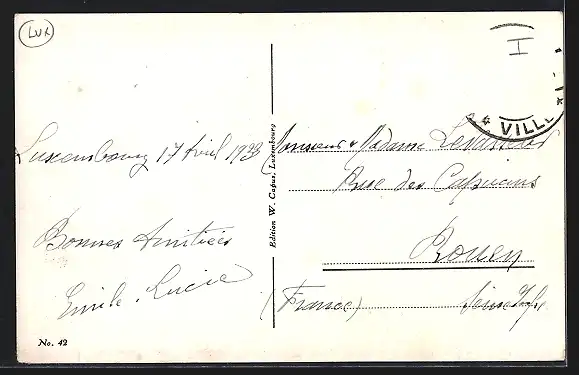 LUX
I
VILLE
Luxembourg 17 Avril 1933
Bonnes Amitiés
Emile. Lucie
Monsieur & Madame Levasseur
Rue des Capucins
Rouen
(France) Seine Infre
Edition W. Capus, Luxembourg
No. 42